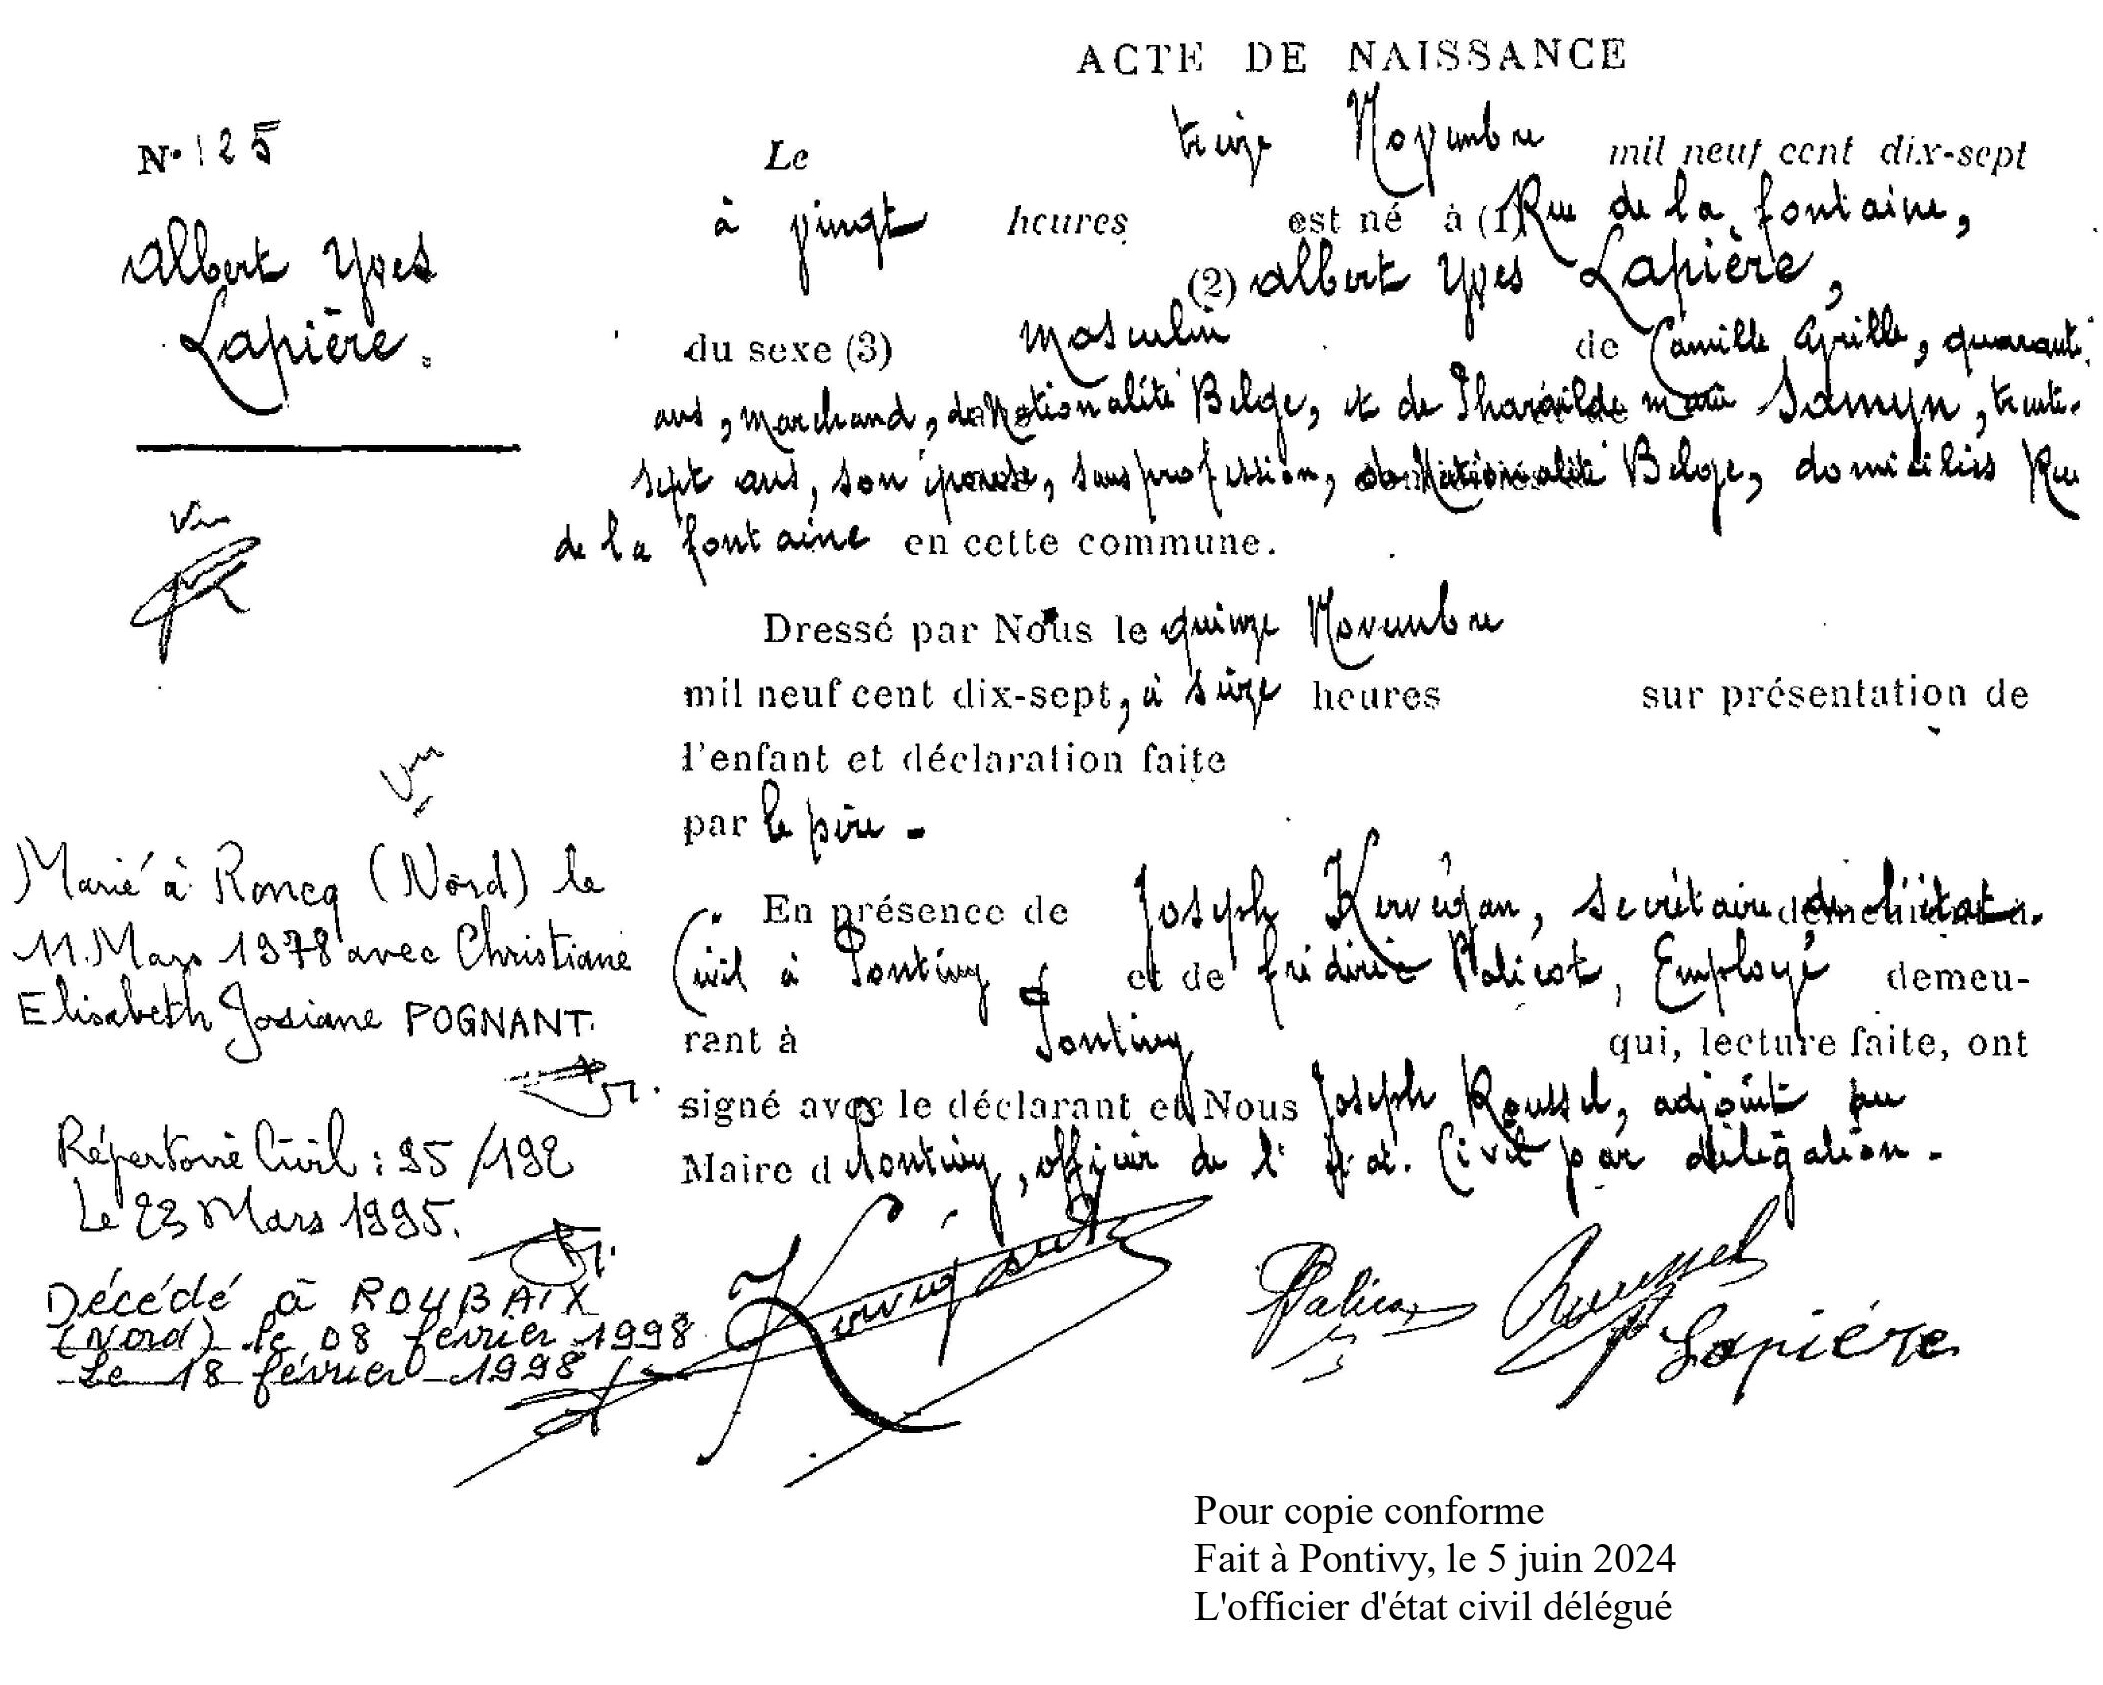 ACTE DE NAISSANCE
N° 125
Albert Yves
Lapière.
Le treize Novembre mil neuf cent dix-sept
à vingt heures est né à (1) Rue de la fontaine,
(2) Albert Yves Lapière,
du sexe (3) masculin de Camille Cyrille, quarante
ans, marchand, de Nationalité Belge, et de Tharcilde Marie Samyn, trente-
sept ans, son épouse, sans profession, de Nationalité Belge, domiciliés Rue
de la fontaine en cette commune.
Dressé par Nous le quinze Novembre
mil neuf cent dix-sept, à seize heures sur présentation de
l'enfant et déclaration faite
par le père -
En présence de Joseph Kervégan, secrétaire de l'état-
Civil à Pontivy et de frédéric Palicot, Employé demeu-
rant à Pontivy qui, lecture faite, ont
signé avec le déclarant et Nous Joseph Roussel, adjoint au
Maire d Pontivy, officier de l'Etat. Civil par délégation.
Vu
Marié à Roncq (Nord) le
11 Mars 1978 avec Christiane
Elisabeth Josiane POGNANT.
Répertoire Civil : 95/192
Le 23 Mars 1995.
Décédé à ROUBAIX
(Nord) le 08 février 1998
Le 18 février 1998
Kervégan
Palicot
Roussel
Lapière
Pour copie conforme
Fait à Pontivy, le 5 juin 2024
L'officier d'état civil délégué